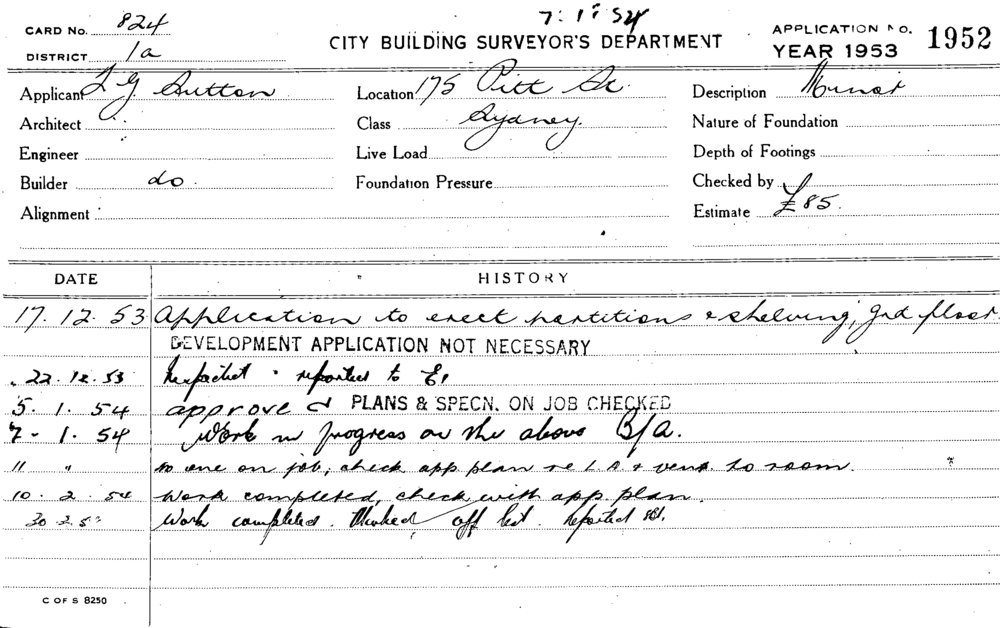 7. 1. 54
CARD No. 824
CITY BUILDING SURVEYOR'S DEPARTMENT
APPLICATION No. 1952
DISTRICT 1a
YEAR 1953
Applicant J G Sutton Location 175 Pitt St. Description Minor
Architect Class Sydney. Nature of Foundation
Engineer Live Load Depth of Footings
Builder do. Foundation Pressure Checked by
Alignment Estimate £85.
DATE HISTORY
17. 12. 53 Application to erect partitions & shelving, grd floor.
DEVELOPMENT APPLICATION NOT NECESSARY
22. 12. 53 reported to
5. 1. 54 approved PLANS & SPECN. ON JOB CHECKED
7 - 1. 54 Work in progress on the above B/A.
" " no one on job, check app. plan re L & vent. to room.
10. 2. 54 Work completed, check with app. plan.
20 2 5 Work completed. Marked off list. Reported
C OF S 8250